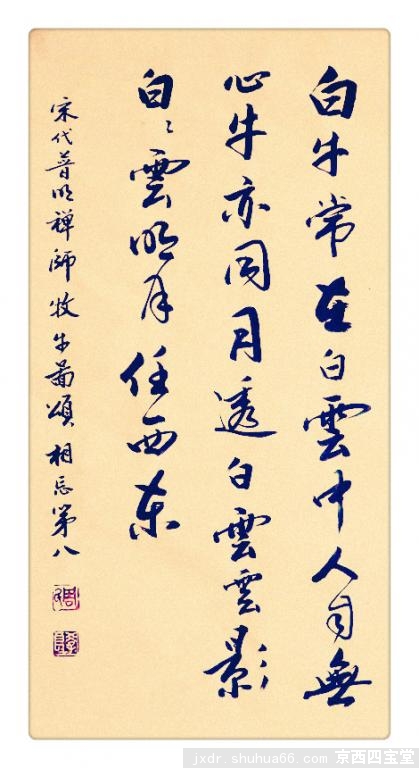 白牛常在白雲中人自無
心牛亦同月透白雲雲影
白〻雲明月任西東
宋代普明禅師牧牛圖頌相忘第八
jxdr.shuhua66.com 京西四宝堂